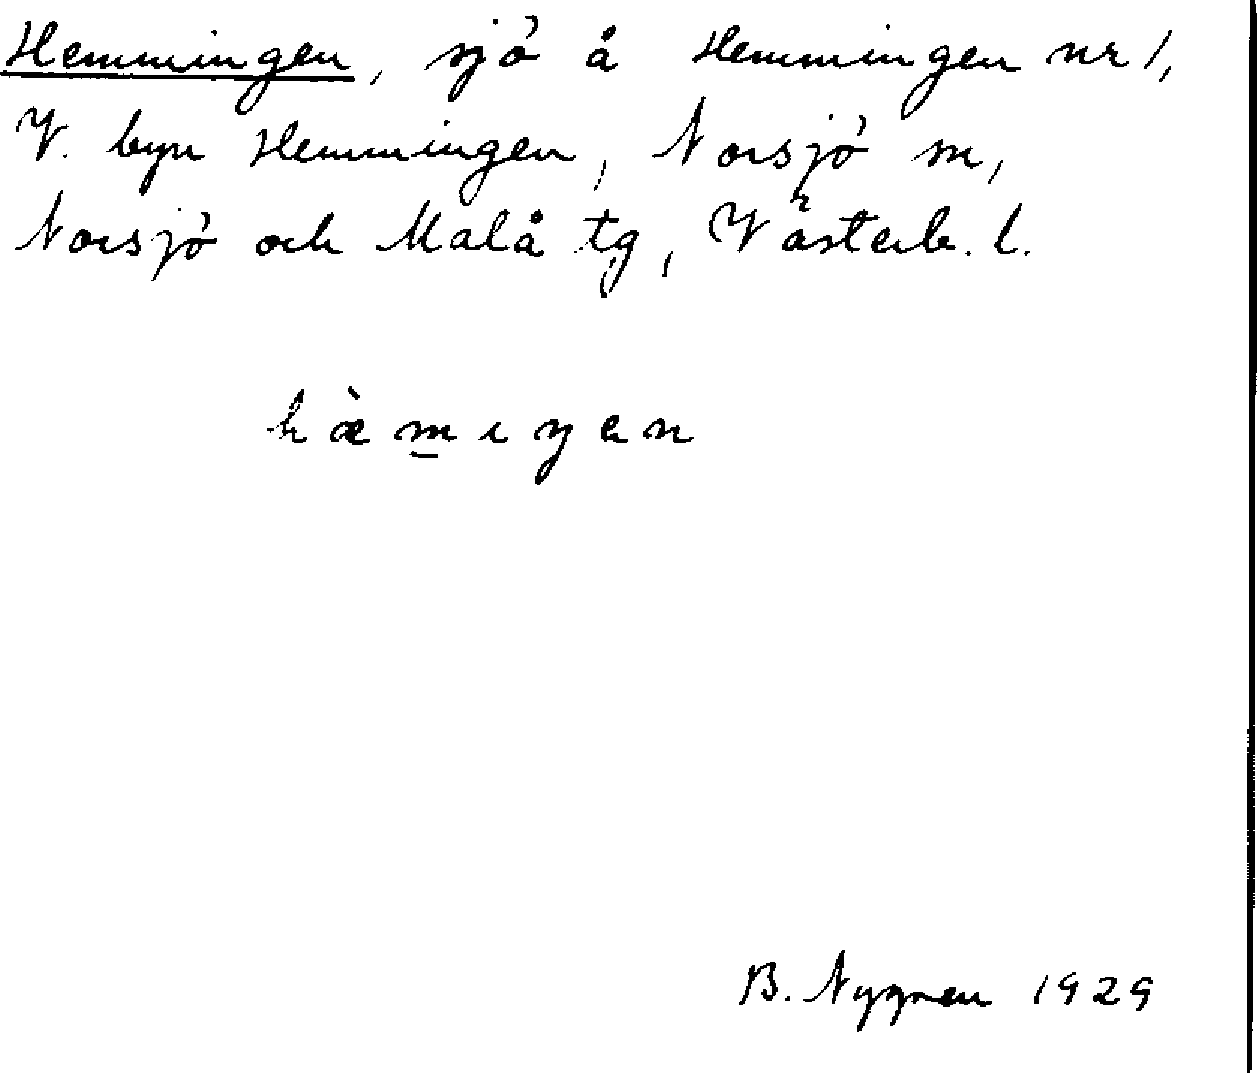 Hemmingen, sjö å Hemmingen nr 1,
V. byn Hemmingen, Norsjö sn,
Norsjö och Malå tg, Västerb. l.
hæ̀m̲ıŋen
B. Nygren 1929